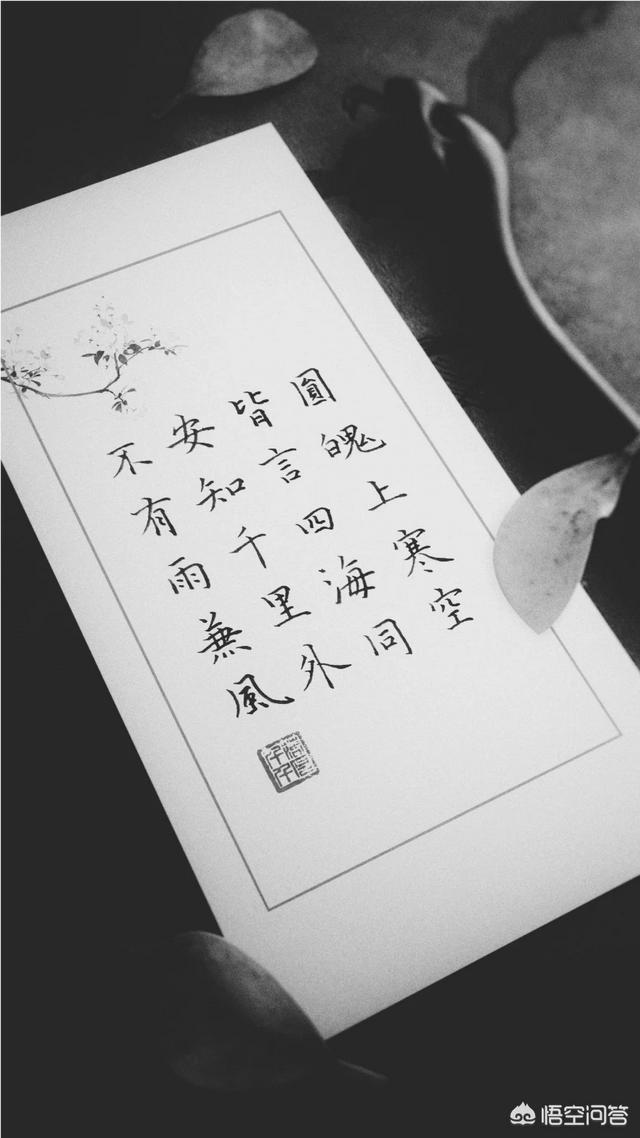 圓魄上寒空
皆言四海同
安知千里外
不有雨兼風
悟空问答